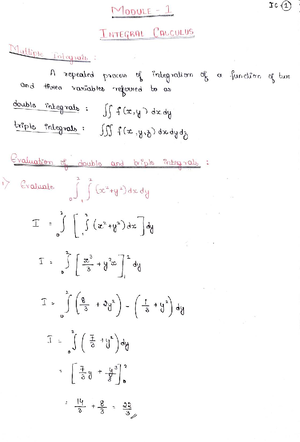 IC ①
MODULE - 1
INTEGRAL CALCULUS
Multiple Integrals :
A repeated process of integration of a function of two
and three variables referred to as
double integrals : ∬ f(x,y) dx dy
triple integrals : ∭ f(x,y,z) dx dy dz
Evaluation of double and triple integrals :
1) Evaluate ∫₀² ∫₁² (x²+y²) dx dy
I = ∫₀² [ ∫₁² (x²+y²) dx ] dy
I = ∫₀² [ x³/3 + y²x ]₁² dy
I = ∫₀² ( 8/3 + 2y² ) - ( 1/3 + y² ) dy
I = ∫₀² ( 7/3 + y² ) dy
= [ 7/3 y + y³/3 ]₀²
= 14/3 + 8/3 = 22/3